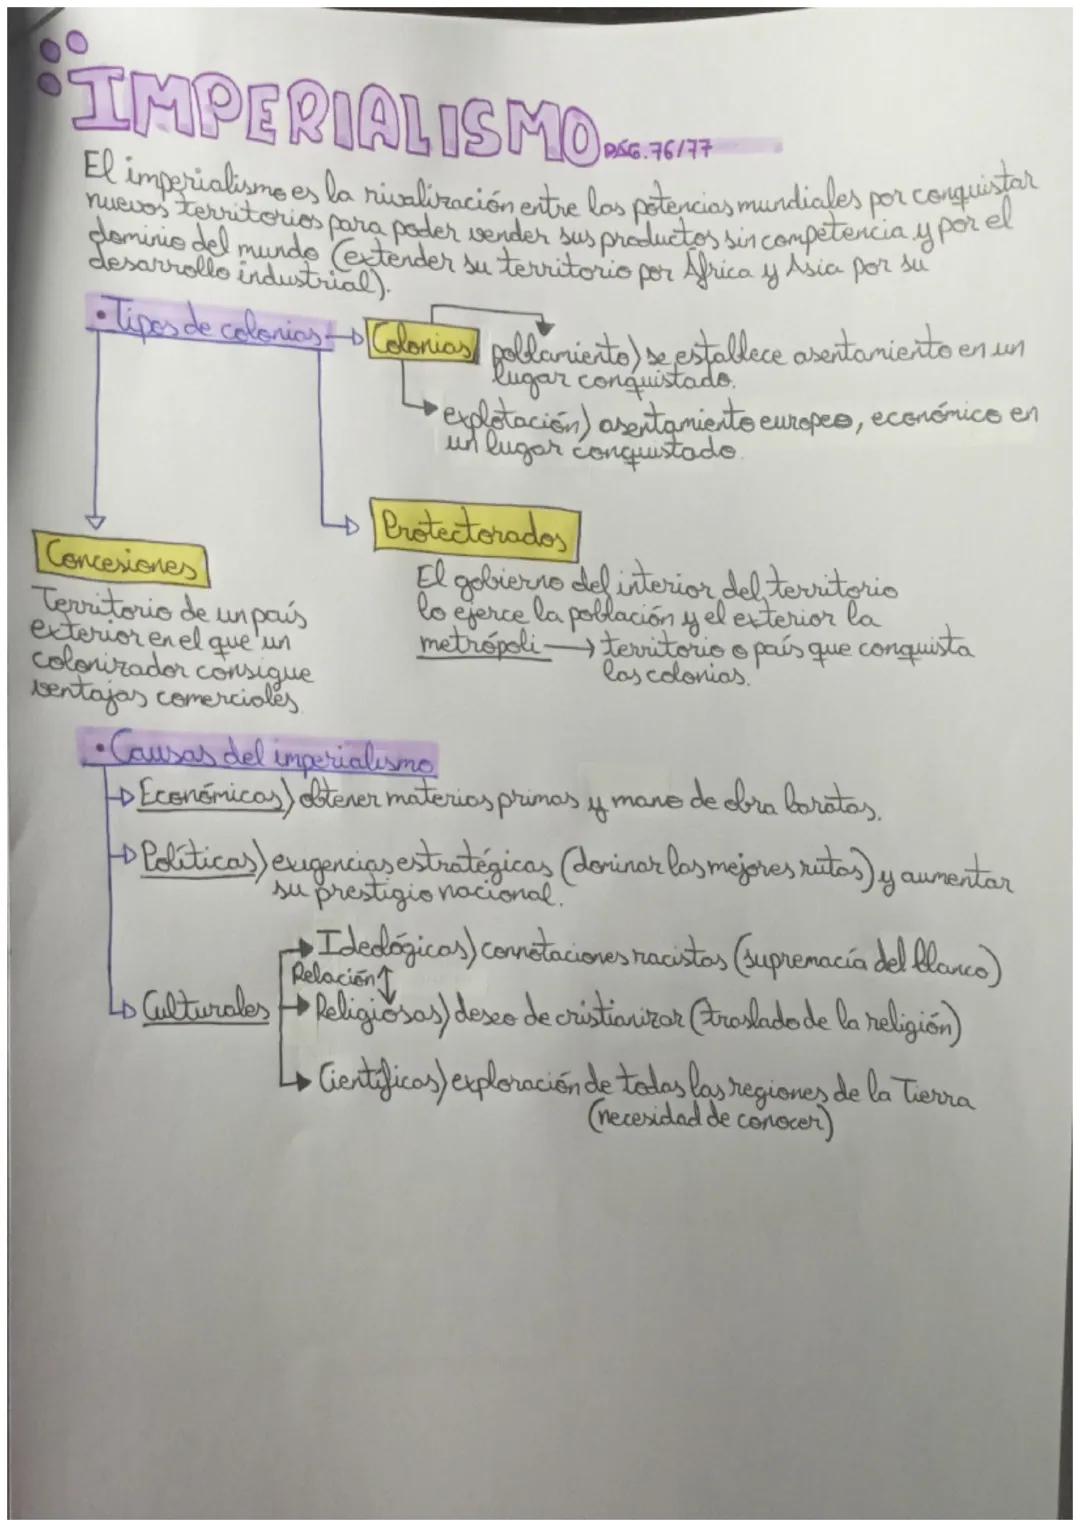 IMPERIALISMO PÁG.76/77
El imperialismo es la rivalización entre las potencias mundiales por conquistar
nuevos territorios para poder vender sus productos sin competencia y por el
dominio del mundo (extender su territorio por África y Asia por su
desarrollo industrial).
• Tipos de colonias
Colonias
poblamiento) se establece asentamiento en un
lugar conquistado.
explotación) asentamiento europeo, económico en
un lugar conquistado.
Protectorados
El gobierno del interior del territorio
lo ejerce la población y el exterior la
metrópoli → territorio o país que conquista
las colonias.
Concesiones
Territorio de un país
exterior en el que un
colonizador consigue
ventajas comerciales.
• Causas del imperialismo
Económicas) obtener materias primas y mano de obra baratas.
Políticas) exigencias estratégicas (dominar las mejores rutas) y aumentar
su prestigio nacional.
Culturales
Ideológicas) connotaciones racistas (supremacía del blanco)
Relación
Religiosas) deseo de cristianizar (traslado de la religión)
Científicas) exploración de todas las regiones de la Tierra
(necesidad de conocer)